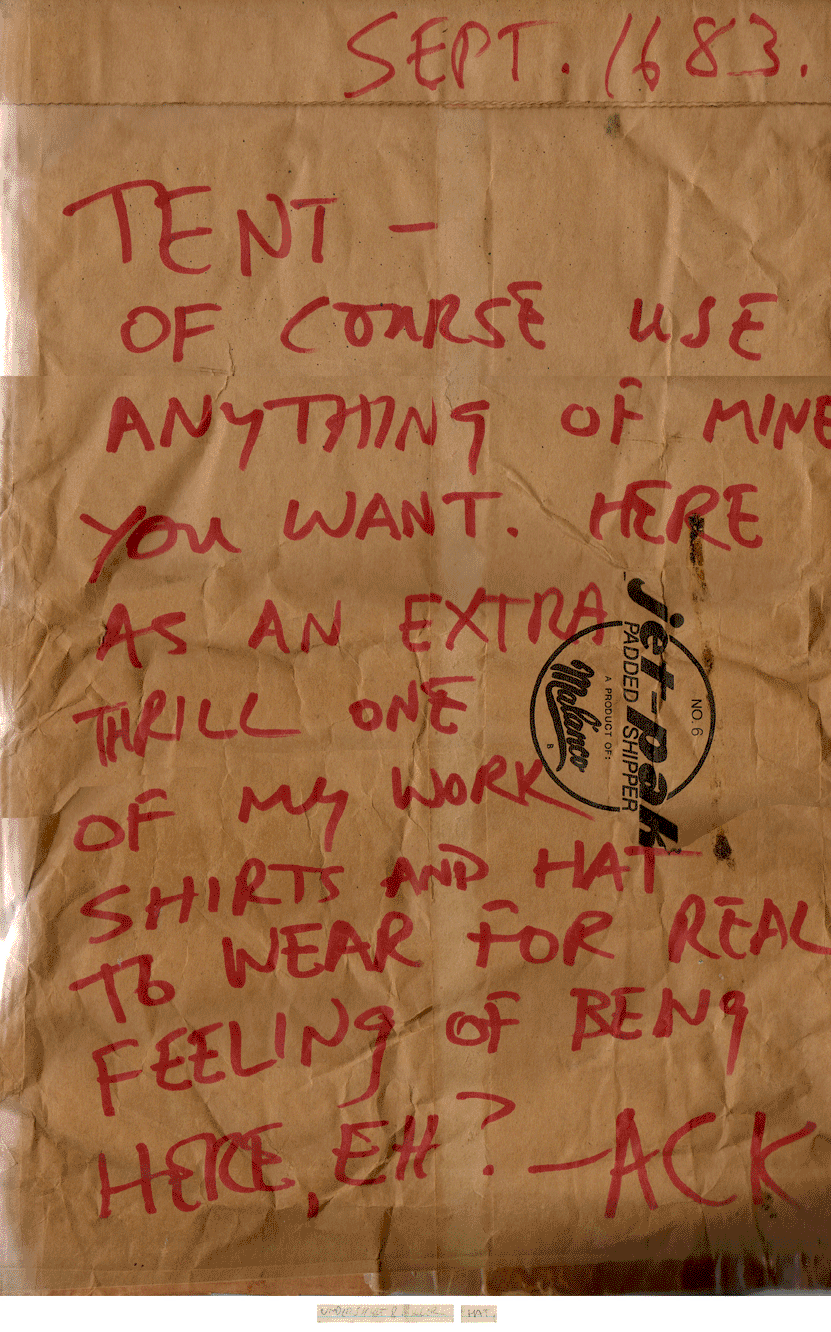 SEPT. 1683.
TENT –
OF COURSE USE
ANYTHING OF MINE
YOU WANT. HERE
AS AN EXTRA
THRILL ONE
OF MY WORK
SHIRTS AND HAT
TO WEAR FOR REAL
FEELING OF BEING
HERE, EH? – ACK
jet-pak
PADDED SHIPPER
NO. 6
A PRODUCT OF:
Malanco
HAT.